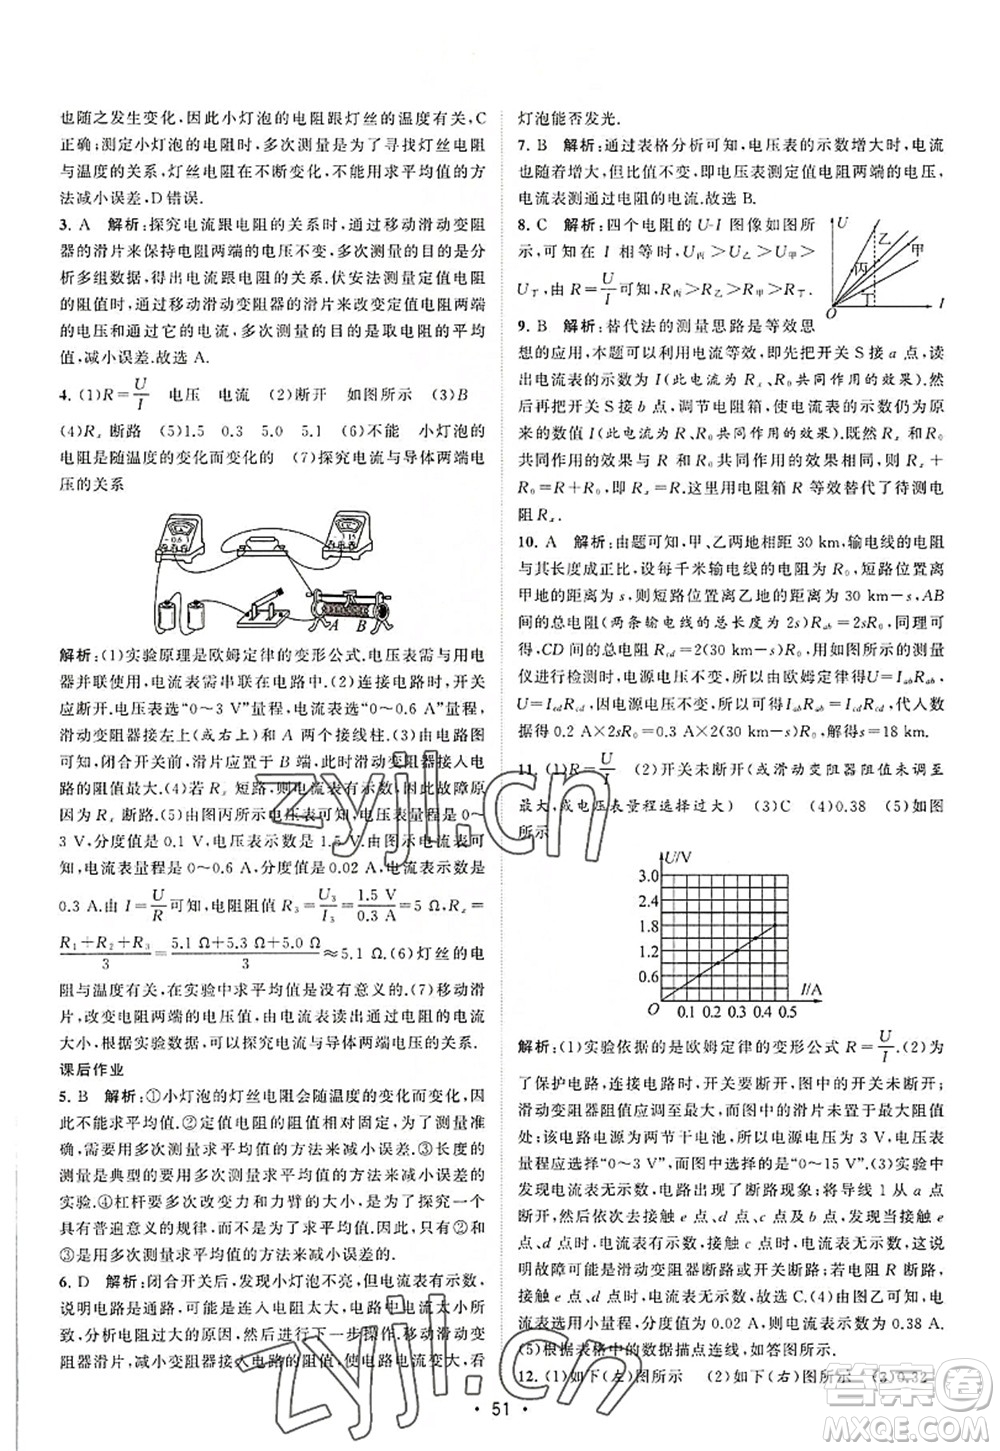 也随之发生变化,因此小灯泡的电阻跟灯丝的温度有关,C
正确;测定小灯泡的电阻时,多次测量的目的是寻找电阻
与温度的关系,灯丝电阻在不断变化,不能用求平均值的方
法减小误差,D错误.
3. A 解析:探究电流跟电阻的关系时,通过移动滑动变阻
器的滑片来保持电阻两端的电压不变,多次测量的目的是
分析多组数据,得出电流跟电阻的关系.伏安法测定值电
阻的阻值时,通过移动滑动变阻器的滑片来改变定值电阻两端
的电压和通过它的电流,多次测量的目的是取电阻的平均
值,减小误差.故选A.
4. (1)R=U/I 电压 电流 (2)断开 如图所示 (3)B
(4)Rx断路 (5)1.5 0.3 5.0 5.1 (6)不能 小灯泡的
电阻是随温度的变化而变化的 (7)探究电流与导体两端电
压的关系
A B
解析:(1)实验原理是欧姆定律的变形公式.电压表需与用电
器并联使用,电流表需串联在电路中.(2)连接电路时,开关
应断开.电压表选“0~3 V”量程,电流表选“0~0.6 A”量程,
滑动变阻器接左上(或右上)和A两个接线柱.(3)由电路图
可知,闭合开关前,滑片应置于B端,此时滑动变阻器连入电
路的阻值最大.(4)若Rx短路,则电流表有示数,因此故障是
Rx断路.(5)由图丙所示电压表可知,电压表量程是0~
3 V,分度值是0.1 V,电压表示数是1.5 V.由图丙所示电流
表可知,电流表量程是0~0.6 A,分度值是0.02 A,示数是
0.3 A.由I=U/R可知,电阻阻值R3=U3/I3=1.5 V/0.3 A=5.0 Ω,Rx=
(R1+R2+R3)/3=(5.1 Ω+5.3 Ω+5.0 Ω)/3≈5.1 Ω.(6)灯丝的电
阻与温度有关,在实验中求平均值是没有意义的.(7)移动滑
片,改变电阻两端的电压值,由电流表测出对应的电流值大
小.根据实验数据,可以探究电流与导体两端电压的关系.
课后作业
5. B 解析:①小灯泡的灯丝电阻会随温度的变化而变化,因
此不能求平均值.②定值电阻的阻值不随温度的变化而变
化,需要采取多次测量求平均值的方法来减小误差.③长度的
测量是典型的要用多次测量求平均值的方法来减小误差的
实验.④杠杆要多次改变力和力臂的大小,是为了探究一个
具有普遍意义的规律,而不是为了求平均值.故只有②和
③是用多次测量求平均值的方法来减小误差的.
6. D 解析:闭合开关后,发现小灯泡不亮,但电流表有示数,
说明电路是通路,可能是连入电阻太大,电路中电流太小造
成的,分析电阻过大的原因,然后进行实验操作.移动滑动变
阻器滑片,减小变阻器接入电路的阻值,看电流表示数,看
灯泡能否发光.
7. B 解析:通过表格分析可知,电压表的示数增大时,电流
表的示数也增大,即电压表测定值电阻两端的电压,
电流表测通过电阻的电流.故选B.
8. C 解析:四个电阻的U-I图像如图所
示,可知在I相等时,U丙>U乙>U甲>
U丁,由R=U/I可知,R丙>R乙>R甲>R丁.
U 乙 甲 丙 丁 O I
9. B 解析:替代法的测量思路是等效思
想的应用,本题可以利用电流等效,即先把开关S接a点,读
出电流表的示数为I(此电流为Rx、R0共同作用的效果).然
后再把开关S接b点,调节电阻箱,使电流表的示数仍为原
来的I(此电流为R、R0共同作用的效果).既然Rx和R0
共同作用的效果与R和R0共同作用的效果相同,则Rx+
R0=R+R0,即Rx=R.这里用电阻箱R等效替代了待测电
阻Rx.
10. A 解析:由题可知,甲、乙两地相距30 km,输电线的电阻
与其长度成正比,设每千米输电线的电阻为R0,短路位置离
甲地的距离为s,则短路位置离乙地的距离为30 km-s,AB
间的总电阻(两条输电线的电阻之和)Rab=2sR0.同理可
得,CD间的总电阻Rcd=2(30 km-s)R0.如图所示的测量
仪进行检测时,电压表示数不变.由欧姆定律可知,
U=IabRab,U=IcdRcd,由以上两式可得IabRab=IcdRcd,代入
数据求得0.2 A×2sR0=0.3 A×2(30 km-s)R0,解得s=18 km.
11. (1)R=U/I (2)开关未断开(或滑动变阻器阻值未调至
最大,或电压表量程选择过大) (3)C (4)0.38 (5)如图
所示
U/V
3.0
2.4
1.8
1.2
0.6
O 0.1 0.2 0.3 0.4 0.5
I/A
解析:(1)实验依据的是欧姆定律的变形公式R=U/I.(2)为
了保护电路,连接电路时开关要断开,图中开关没有断开;
滑动变阻器阻值应调至最大,图中的滑片未置于最大阻值
处;该电路电源为两节干电池,所以电源电压为3 V,电压表
量程应选择“0~3 V”,图中选择了“0~15 V”.(3)实验中
发现电流表无示数,电路出现了断路现象;将导线1从a点
断开,依次试触接线点e、d、c、b,发现试触e点、d点时电流表
均无示数,试触c点、b点时电流表有示数且示数相同,说
明故障可能是滑动变阻器断路或开关断路.(4)由图乙可知,
电流表的量程为0~0.6 A,则电流表的示数为0.38 A.
(5)根据表格中的数据描点连线,如答图所示.
12. (1)如下(左)图所示 (2)如下(右)图所示 (3)0.32
· 51 ·
zyjl.cn
zyjl.cn
答案圈
MXQE.COM